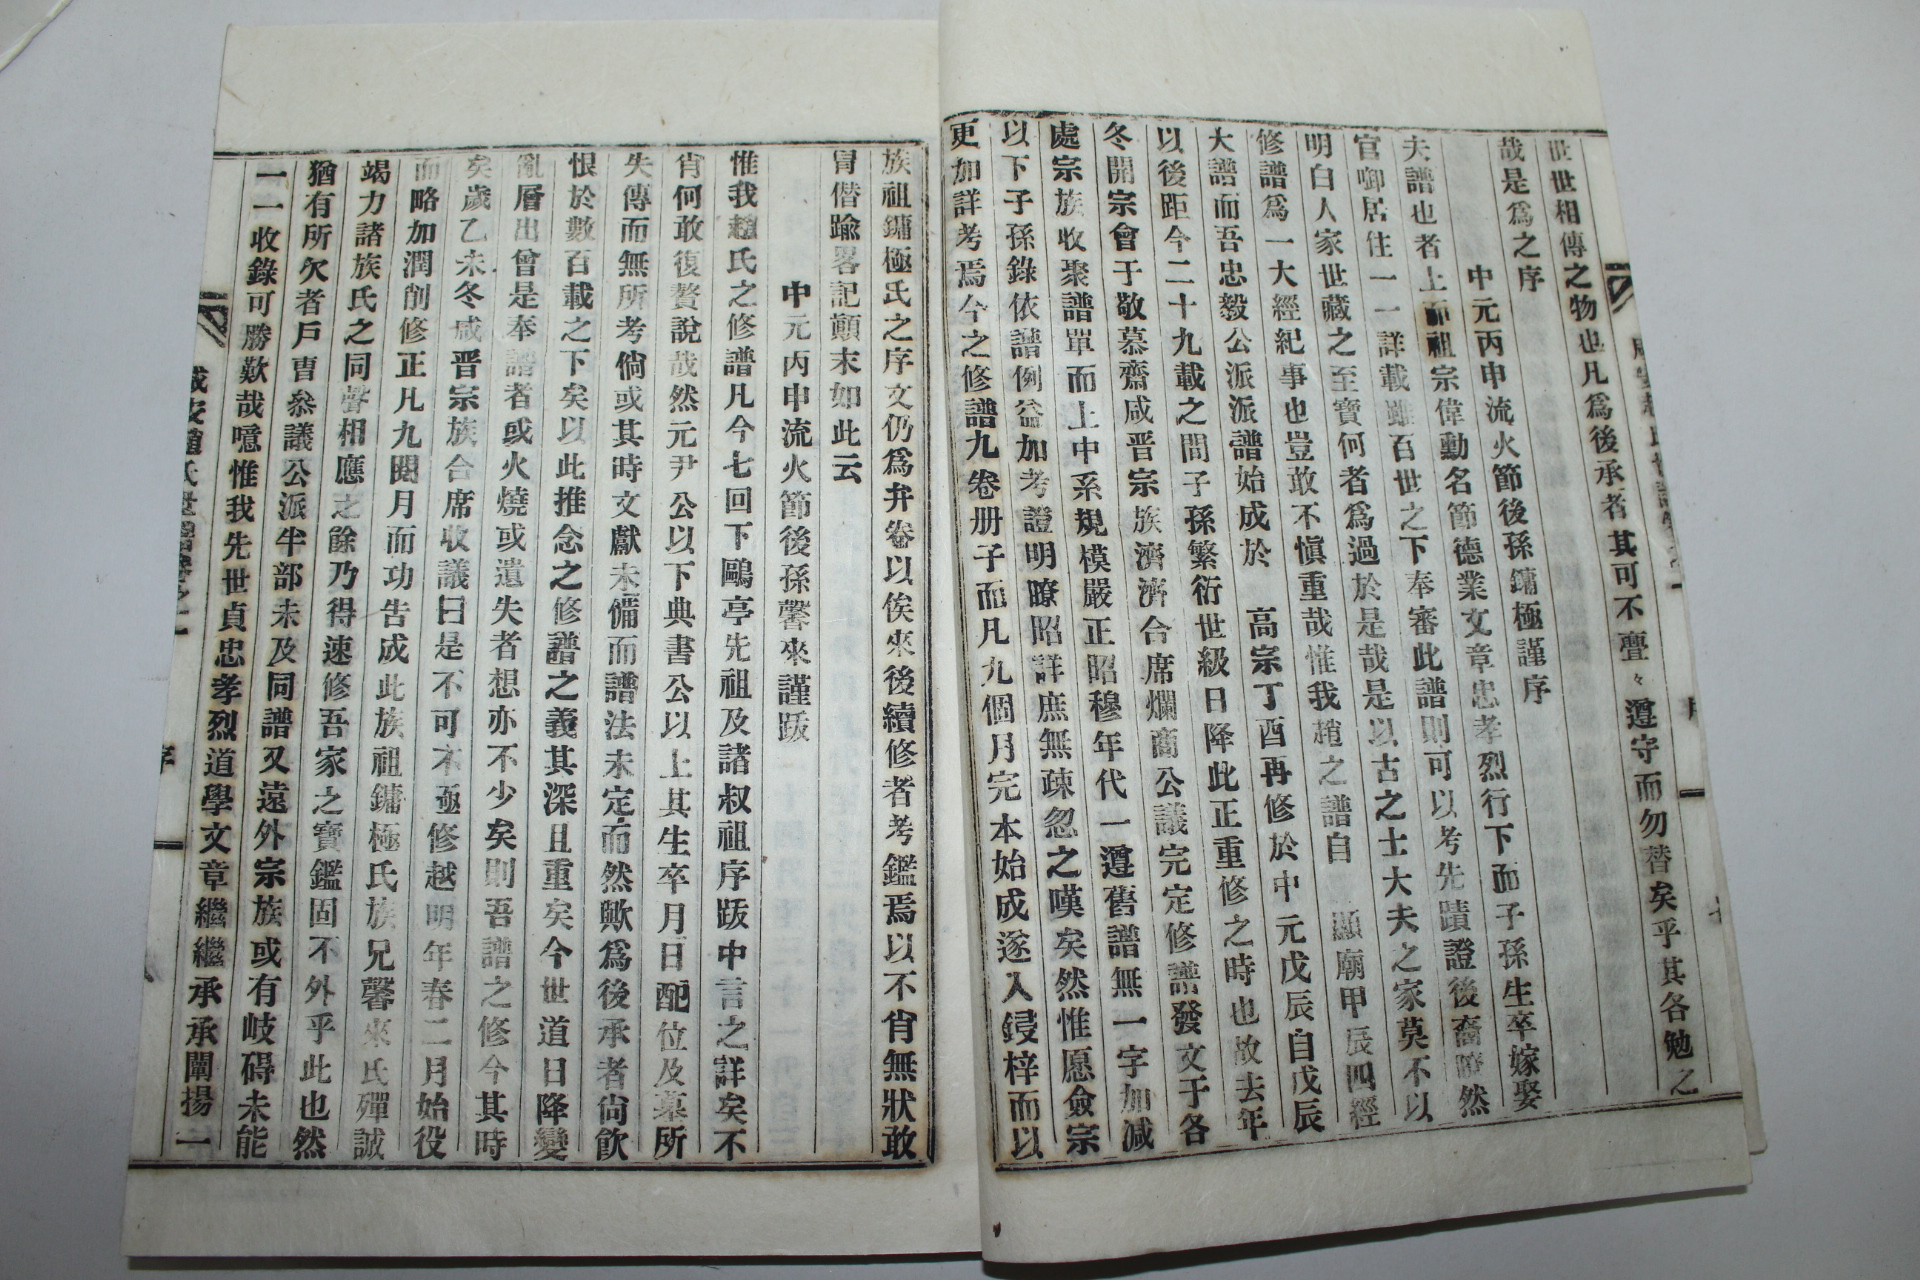 世世相傳之物也凡爲後承者其可不亹々遵守而勿替矣乎其各勉之
哉是爲之序
中元丙申流火節後孫鏞極謹序
夫譜也者上而祖宗偉勳名節德業文章忠孝烈行下而子孫生卒嫁娶
官啣居住一一詳載雖百世之下奉審此譜則可以考先蹟證後裔瞭然
明白人家世藏之至寶何者爲過於是哉是以古之士大夫之家莫不以
修譜爲一大經紀事也豈敢不愼重哉惟我趙之譜自 顯廟甲辰四經
大譜而吾忠毅公派派譜始成於 高宗丁酉再修於中元戊辰自戊辰
以後距今二十九載之間子孫繁衍世級日降此正重修之時也故去年
冬開宗會于敬慕齋咸晋宗族濟濟合席爛商公議完定修譜發文于各
處宗族收聚譜單而上中系規模嚴正昭穆年代一遵舊譜無一字加减
以下子孫錄依譜例益加考證明瞭昭詳庶無疎忽之嘆矣然惟愿僉宗
更加詳考焉今之修譜九卷册子而凡九個月完本始成遂入鋟梓而以
族祖鏞極氏之序文仍爲弁卷以俟來後續修者考鑑焉以不肖無狀敢
冒僭踰畧記顚末如此云
中元丙申流火節後孫馨來謹跋
惟我趙氏之修譜凡今七回下鷗亭先祖及諸叔祖序跋中言之詳矣不
肖何敢復贅說哉然元尹公以下典書公以上其生卒月日配位及墓所
失傳而無所考倘或其時文獻未備而譜法未定而然歟爲後承者尙飮
恨於數百載之下矣以此推念之修譜之義其深且重矣今世道日降變
亂層出曾是奉譜者或火燒或遺失者想亦不少矣則吾譜之修今其時
矣歲乙未冬咸晋宗族合席收議曰是不可不亟修越明年春二月始役
而略加潤削修正凡九閱月而功告成此族祖鏞極氏族兄馨來氏殫誠
竭力諸族氏之同聲相應之餘乃得速修吾家之寶鑑固不外乎此也然
猶有所欠者戶曺叅議公派半部未及同譜又遠外宗族或有岐碍未能
一一收錄可勝歎哉噫惟我先世貞忠孝烈道學文章繼繼承承闡揚一
咸安趙氏世譜卷之一
序